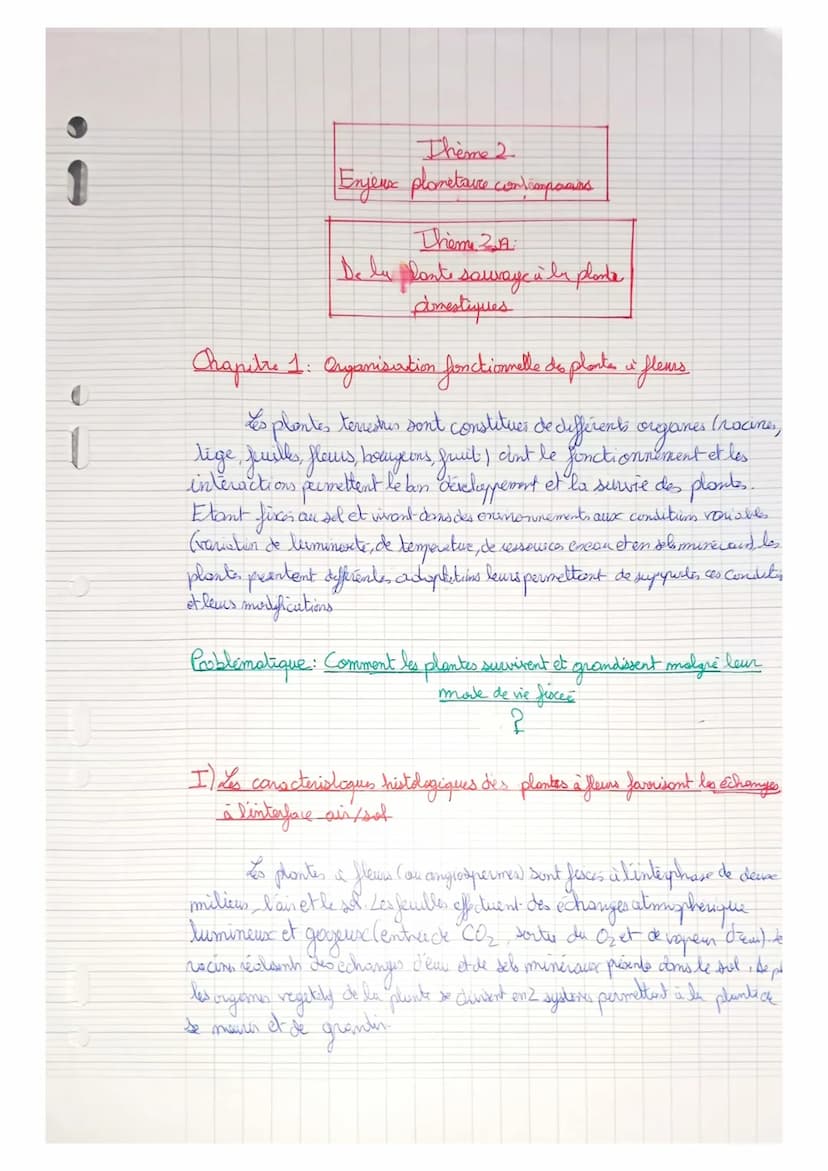 Thème 2
Enjeux planetaire contemporains
Thème 2.A:
De la plante sauvage à la plante
domestiques
Chapitre 1: Organisation fonctionnelle des plantes à fleurs
Les plantes terrestres sont constitues de différents organes (racines,
tige, feuilles, fleurs, bourgeons, fruit) dont le fonctionnement et les
intéractions permettent le bon développement et la survie des plantes.
Etant fixés au sol et vivant dans des environnements aux conditions variables
(variation de luminosité, de température, de ressources en eau et en sels minéraux), les
plantes présentent différentes adaptations leurs permettant de supporter ces conditi
et leurs modifications
Problématique: Comment les plantes survivent et grandissent malgré leur
mode de vie fixée
?
I) Les caracteristiques histologiques des plantes à fleurs favorisent les échanges
à l'interface air/sol
Les plantes à fleurs (ou angiospermes) sont fixées à l'intérphase de deux
milieux, l'air et le sol. Les feuilles effectuent des échanges atmospherique
lumineux et gazeux (entrée de CO2, sortie du O2 et de vapeur d'eau).
racines réalisent des échanges d'eau et de sels minéraux présents dans le sol,
les organes vegetatifs de la plante se divisent en 2 systemes permettant à la plante de
se nourrir et de grandir.